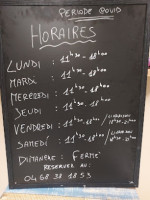 PERIODE COVID
HORAIRES
LUNDI : 11h30 - 18h00
MARDI : 11h30 - 18h00
MERCREDI : 11h30 - 18h00
JEUDI : 11h30 - 18h00
VENDREDI : 11h30 - 18h00
SAMEDI : 11h30 - 18h00
DIMANCHE : FERMÉ
RESERVER AU :
04 68 38 18 53